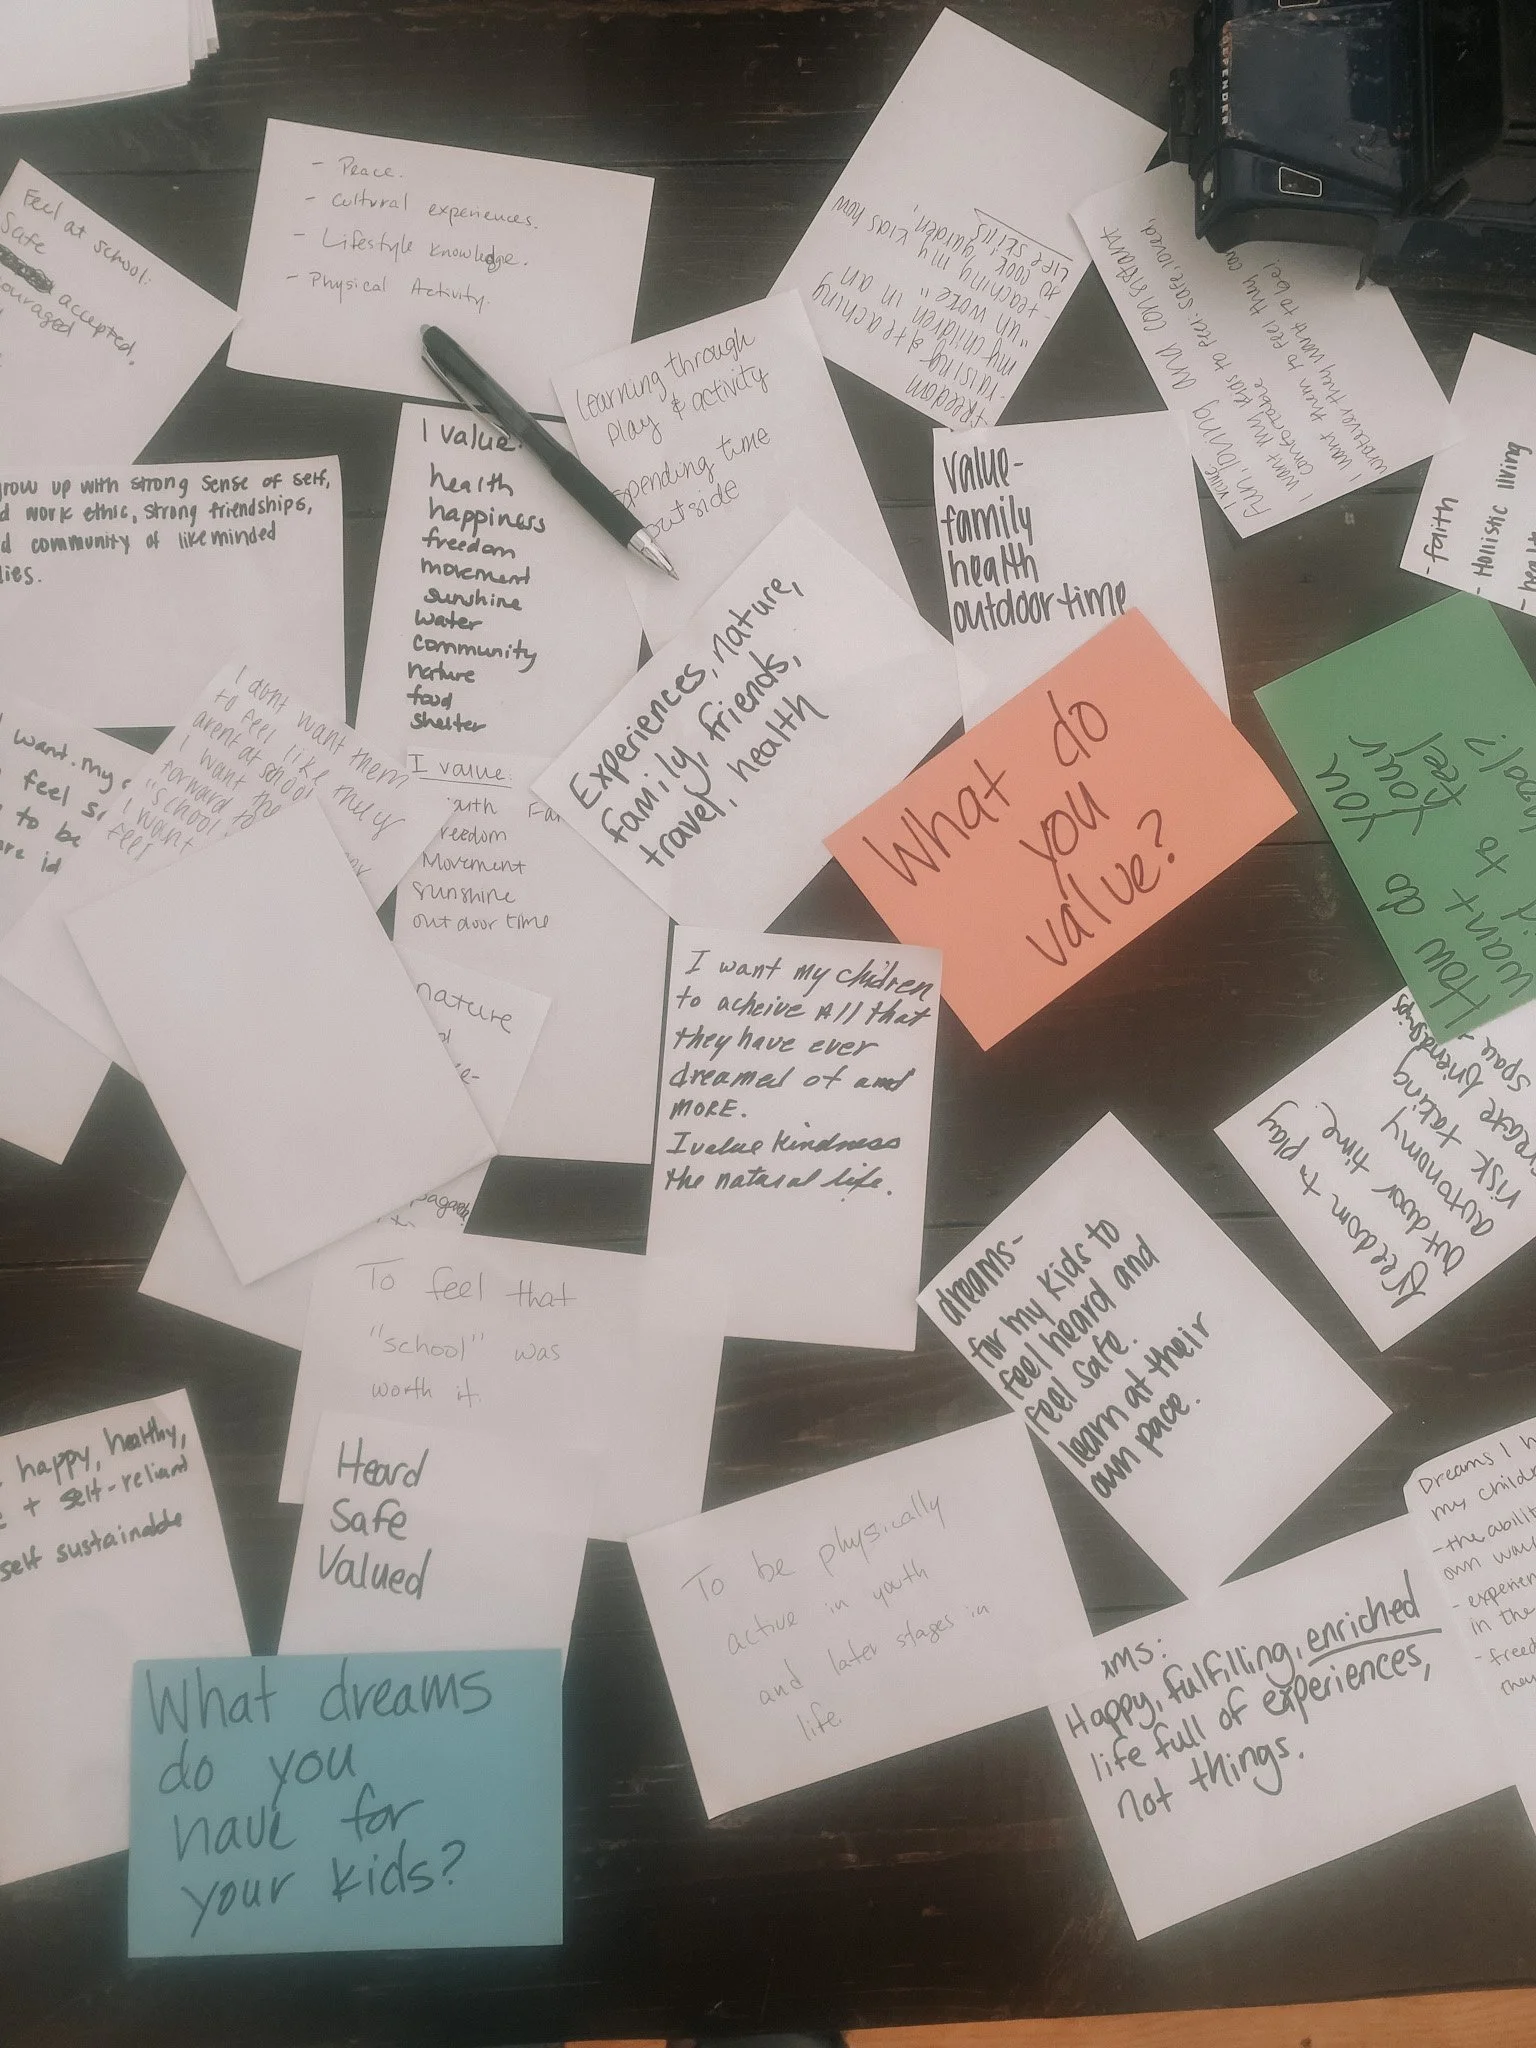 Feel at school:
Safe
accepted.
- Peace.
- Cultural experiences.
- Lifestyle knowledge.
- Physical Activity.
freedom
raising & teaching
my children in an
"un woke"
- teaching my kids how
to cook, garden,
LIFE SKILLS
DEFENDER
I value
fun, loving and constant
I want my kids to feel: safe, loved,
comfortable
I want them to feel they can
whatever they want to be!
- faith
- Hollistic living
grow up with strong sense of self,
work ethic, strong friendships,
community of likeminded
I value:
health
happiness
freedom
movement
sunshine
water
community
nature
food
shelter
learning through
play & activity
spending time
outside
value-
family
health
outdoor time
Experiences, nature,
family, friends,
travel, health
What do
you
value?
How do you
want your
to feel
want my
feel
to be
I dont want them
to feel like they
arent at school
I want the
forward to
"school"
I want
feel
I value:
Movement
sunshine
outdoor time
nature
I want my children
to acheive All that
they have ever
dreamed of and
MORE.
I value kindness
the natural life.
freedom to play
outdoor time.
autonomy
risk taking
create friendships
space
dreams-
for my kids to
feel heard and
feel safe.
learn at their
own pace.
To feel that
"school" was
worth it.
Heard
Safe
Valued
happy, healthy,
+ self-reliant
self sustainable
To be physically
active in youth
and later stages in
life
Dreams I
my
- the
own
in the
Happy, fulfilling, enriched
life full of experiences,
not things.
What dreams
do you
have for
your kids?